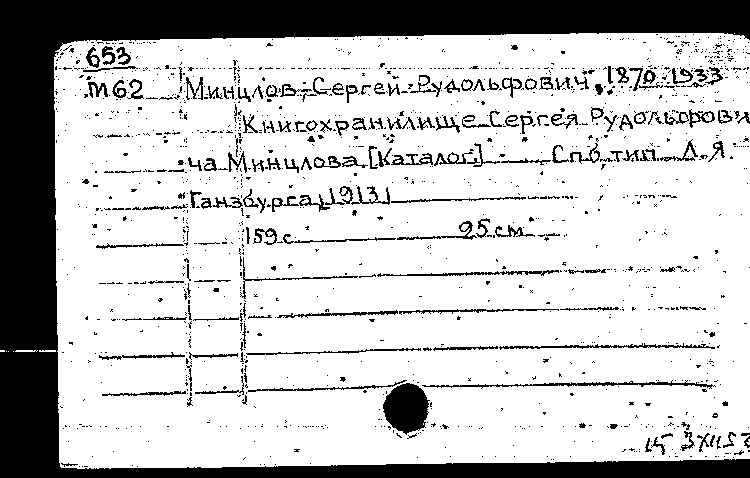 653
М62 Минцлов, Сергей Рудольфович, 1870-1933
Книгохранилище Сергея Рудольфови
ча Минцлова. [Каталог] Спб, тип. Л.Я.
Ганзбурга, [1913]
159 с. 25 см.